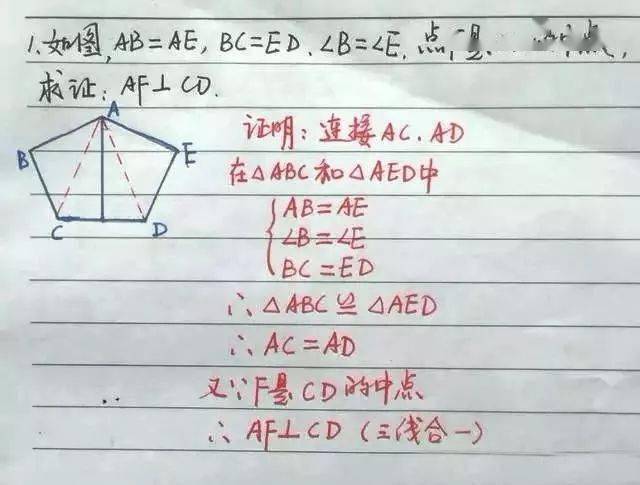 1.如图,AB=AE,BC=ED.∠B=∠E.点
求证:AF⊥CD.
A
B
E
C
D
证明:连接AC.AD
在△ABC和△AED中
AB=AE
∠B=∠E
BC=ED
∴△ABC≌△AED
∴AC=AD
又∵F是CD的中点
∴AF⊥CD(三线合一)